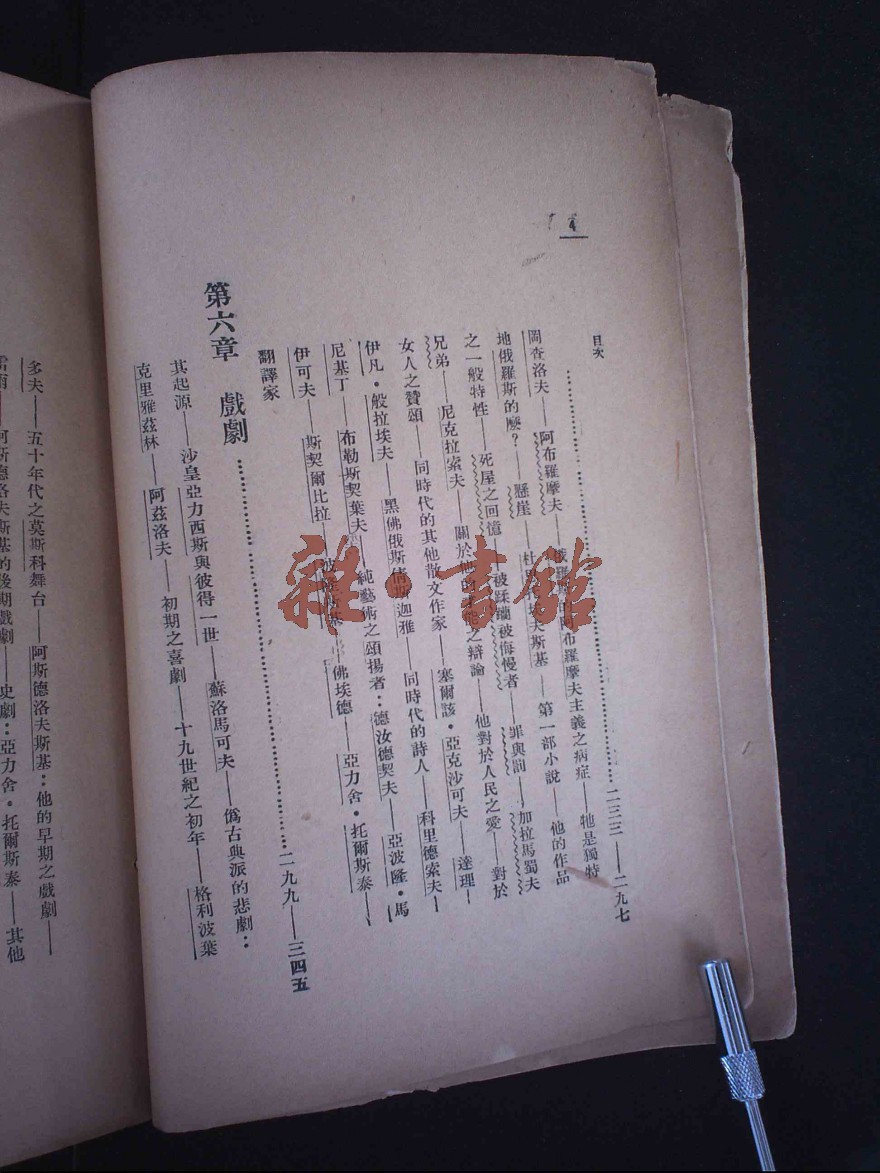 4
目次
……二三三—二九七
岡查洛夫——阿布羅摩夫——俄羅斯的阿布羅摩夫主義之病症——牠是獨特
地俄羅斯的麼?——懸崖——杜 埃夫斯基——第一部小說——他的作品
之一般特性——死屋之回憶——被蹂躪被侮慢者——罪與罰——加拉馬蜀夫
兄弟——尼克拉索夫——關於他的才能之辯論——他對於人民之愛——對於
女人之贊頌——同時代的其他散文作家——塞爾該·亞克沙可夫——達理——
伊凡·般拉埃夫——黑佛俄斯倩斯迦雅——同時代的詩人——科里德索夫——
尼基丁——布勒斯契葉夫——純藝術之頌揚者:德汝德契夫——亞波隆·馬
伊可夫——斯契爾比拉——佛埃德——亞力舍·托爾斯泰——
翻譯家
第六章 戲劇……二九九—三四五
其起源——沙皇亞力西斯與彼得一世——蘇洛馬可夫——僞古典派的悲劇:
克里雅茲林——阿茲洛夫——初期之喜劇——十九世紀之初年——格利波葉
多夫——五十年代之莫斯科舞台——阿斯德洛夫斯基:他的早期之戲劇——
阿斯德洛夫斯基的後期戲劇——史劇:亞力舍·托爾斯泰——其他
雜·書館